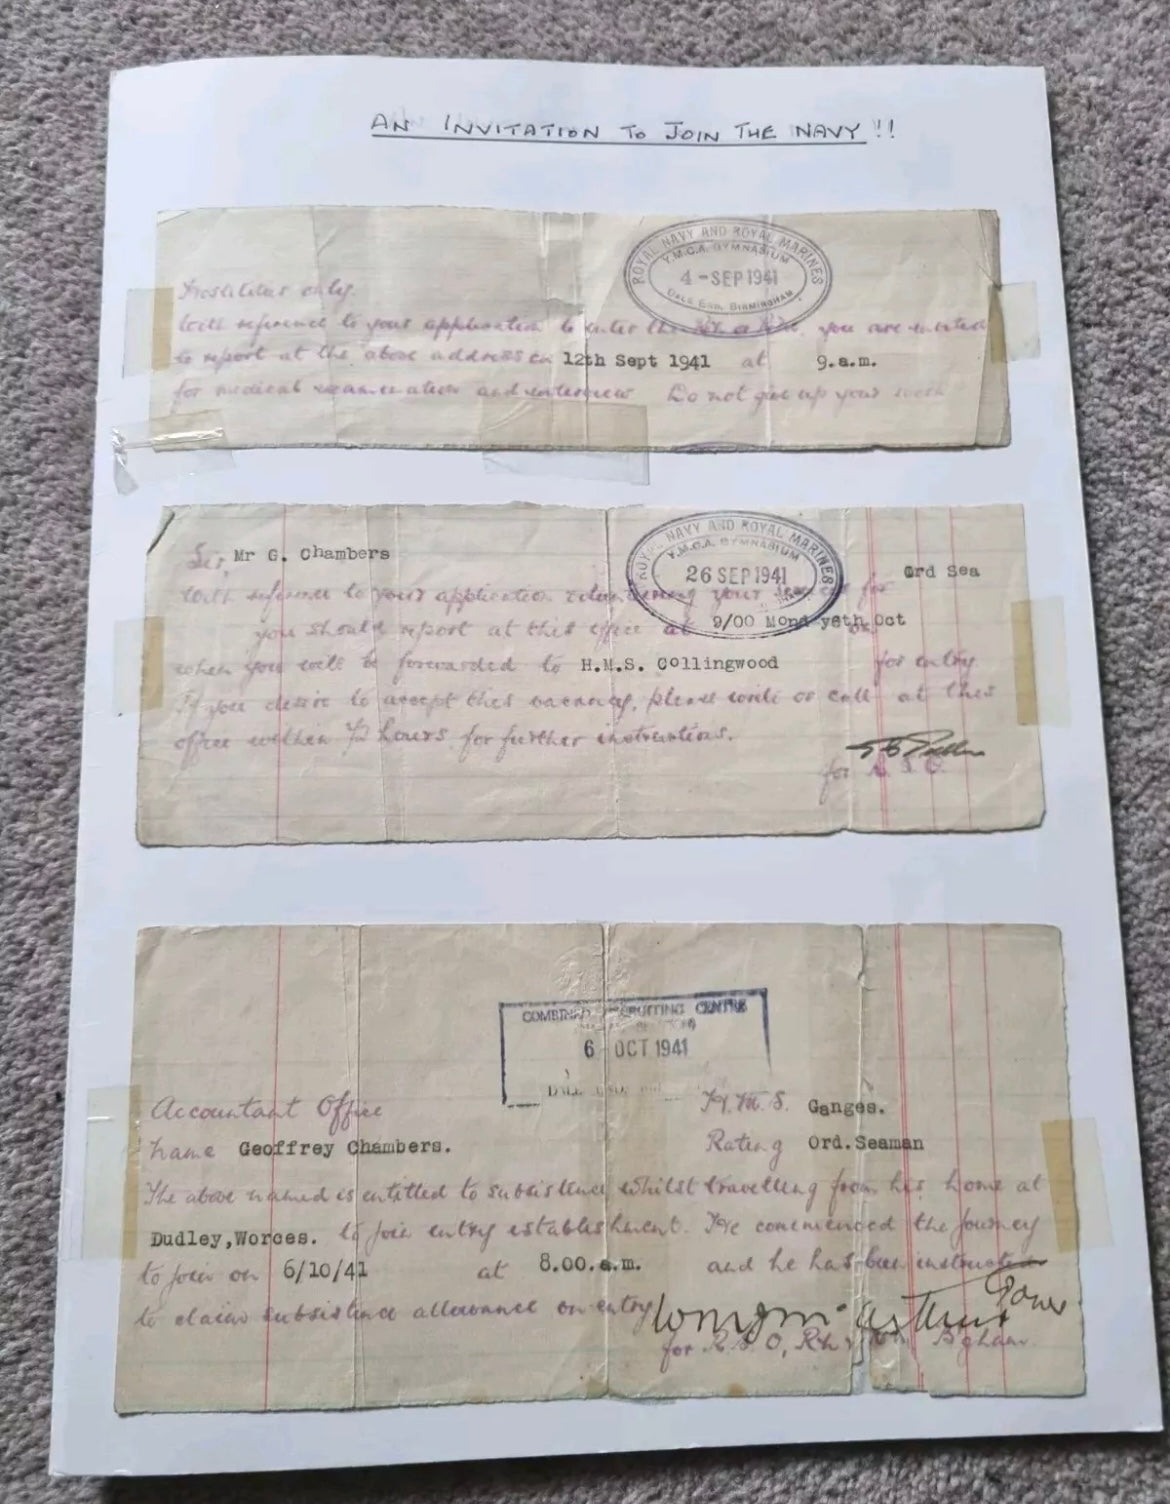 AN INVITATION TO JOIN THE NAVY !!
ROYAL NAVY AND ROYAL MARINES
Y.M.C.A. GYMNASIUM
4 - SEP 1941
DALE END, BIRMINGHAM
Hostilities only.
With reference to your application to enter the you are invited
to report at the above address on 12th Sept 1941 at 9.a.m.
for medical examination and interview Do not give up your work
ROYAL NAVY AND ROYAL MARINES
Y.M.C.A. GYMNASIUM
26 SEP 1941
Sir, Mr G. Chambers
Ord Sea
With reference to your application volunteering your services for
you should report at this office at 9/00 Oct
when you will be forwarded to H.M.S. Collingwood for entry.
If you desire to accept this vacancy, please write or call at this
office within 72 hours, for further instructions.
for R. S. O.
COMBINED RECRUITING CENTRE
6 OCT 1941
Accountant Office H.M.S. Ganges.
Name Geoffrey Chambers. Rating Ord.Seaman
The above named is entitled to subsistence whilst travelling from his home at
Dudley,Worces. to join entry establishment. He commenced the journey
to join on 6/10/41 at 8.00.a.m. and he has been instructed
to claim subsistence allowance on entry
for R S O, B'ham.